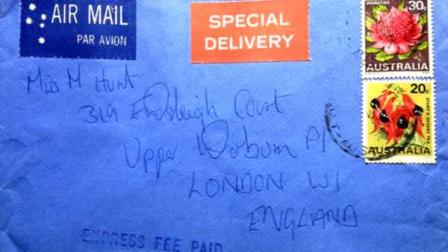 AIR MAIL
PAR AVION
SPECIAL
DELIVERY
WARATAH 30c
AUSTRALIA
20c
STURT'S DESERT PEA
AUSTRALIA
Miss M Hunt
319 Endsleigh Court
Upper Woburn Pl
LONDON W1
ENGLAND
EXPRESS FEE PAID